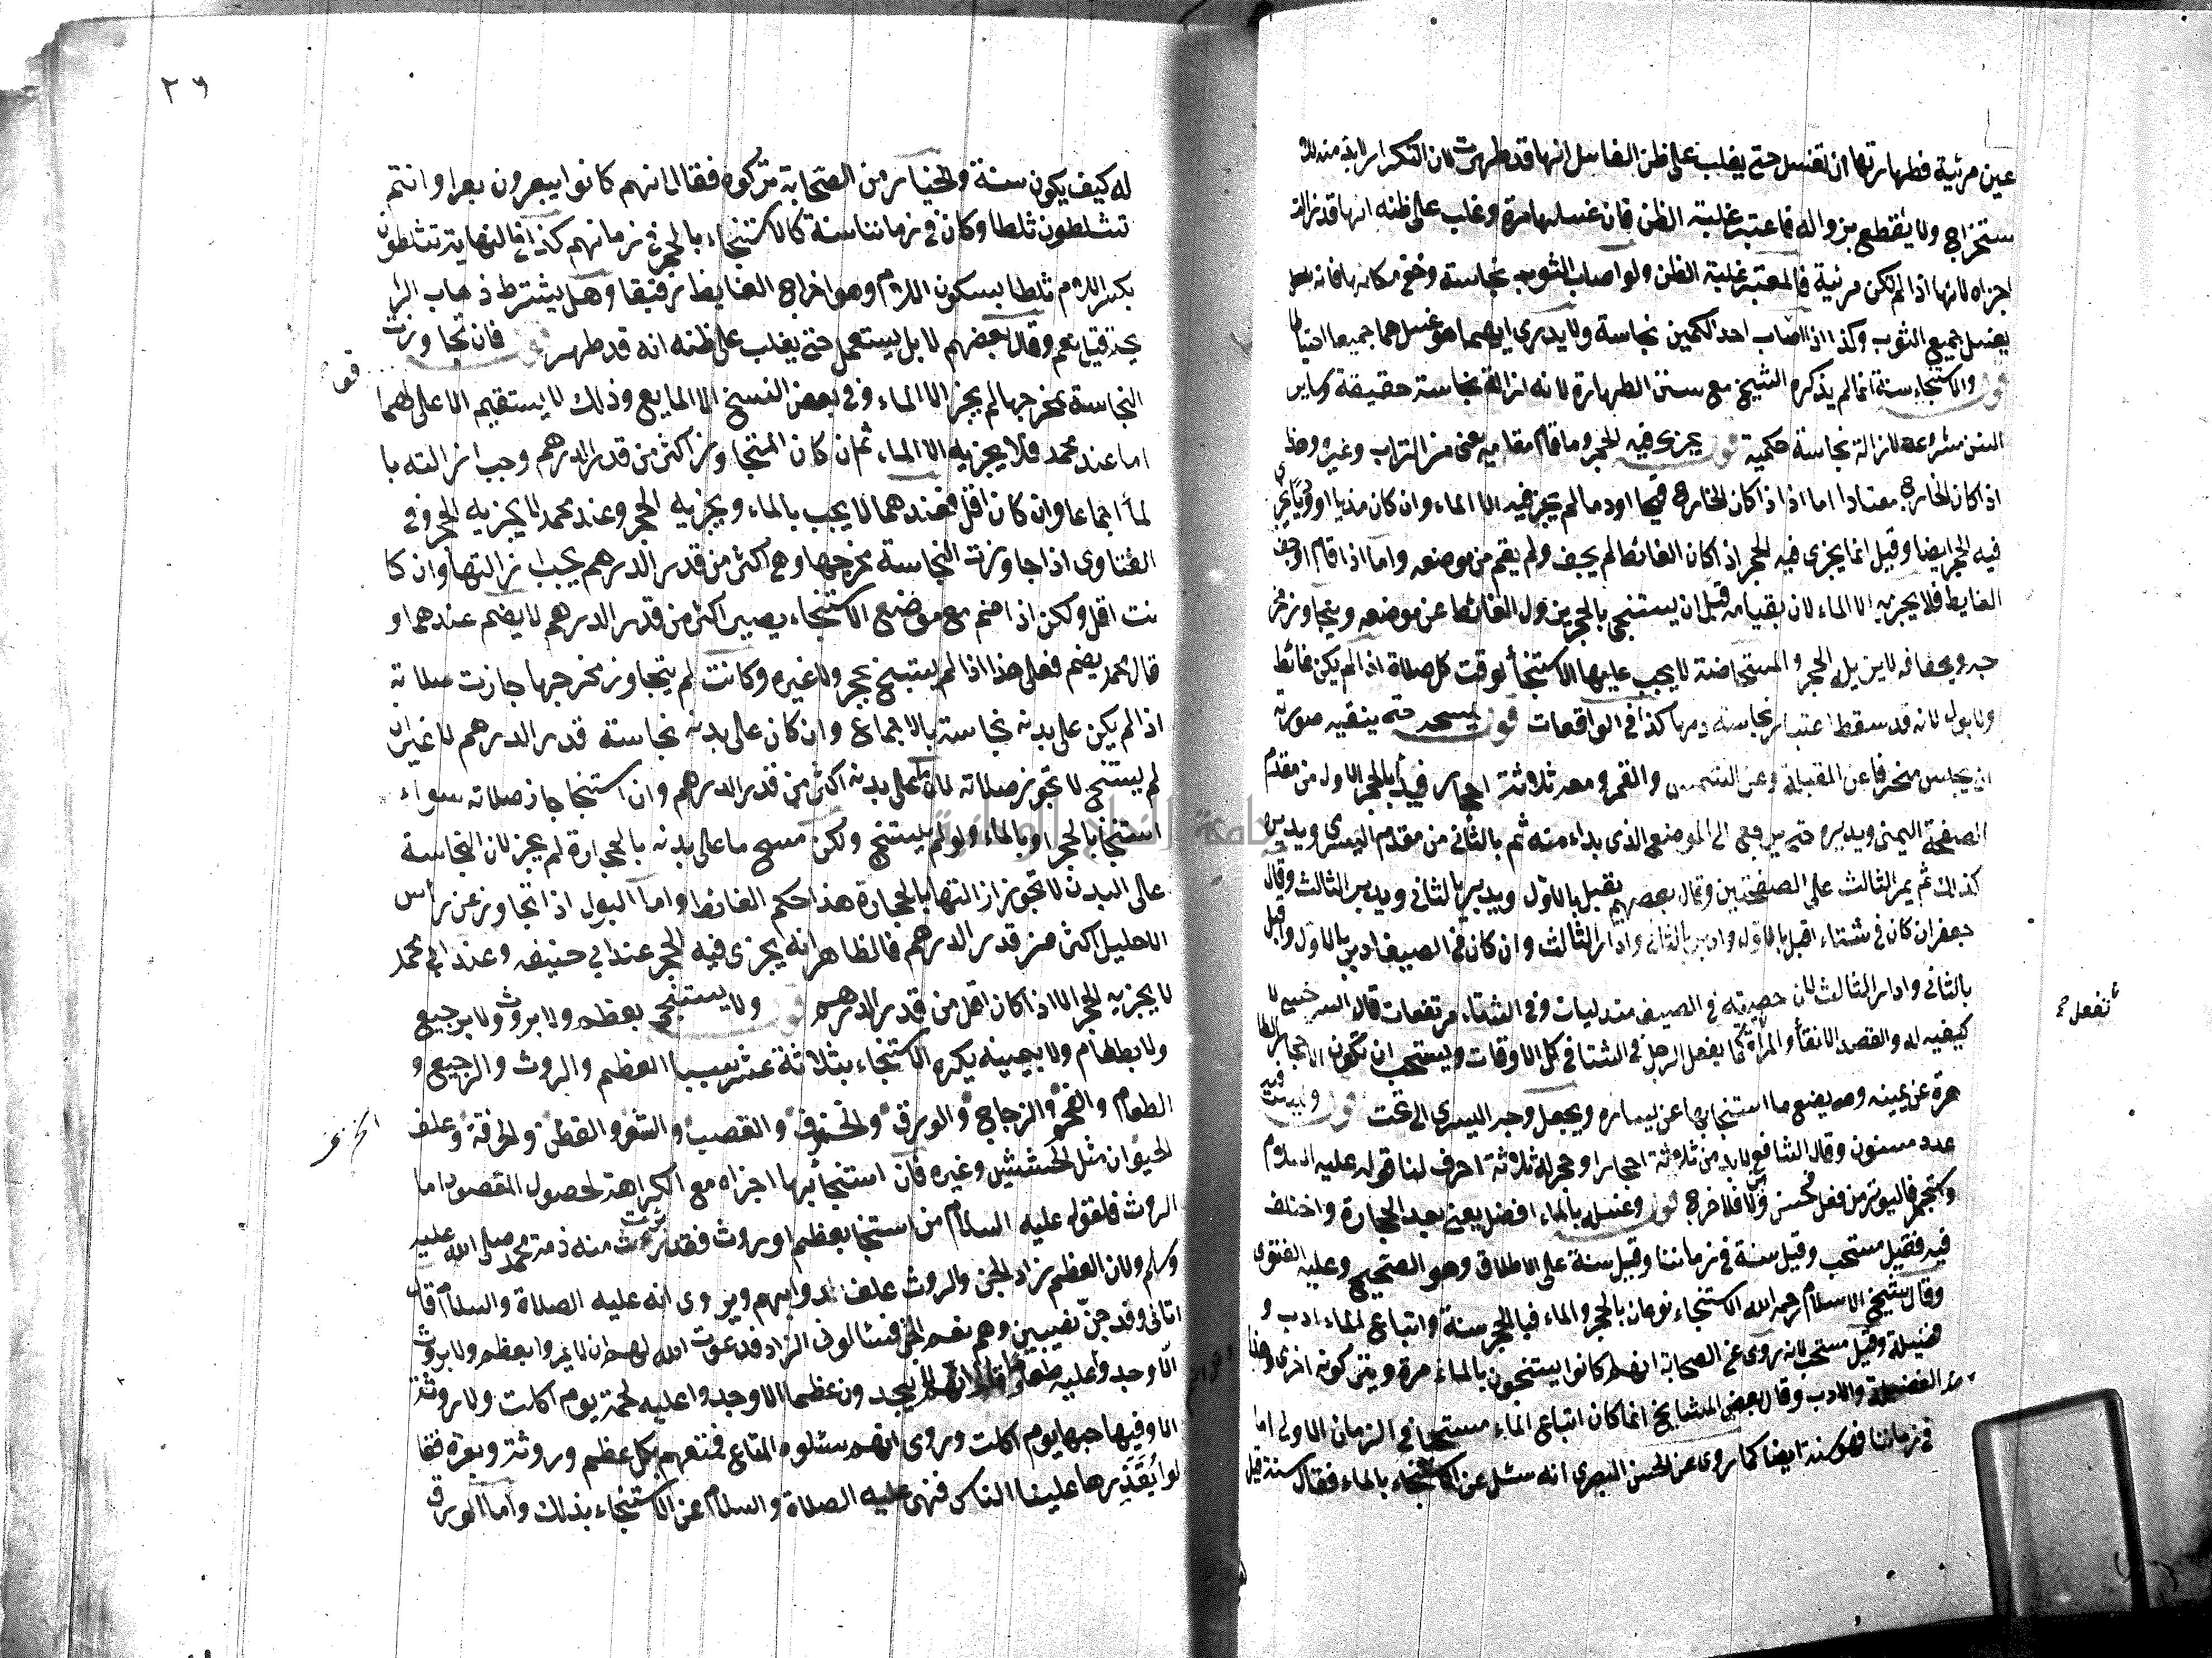 عين مرئية فطهارتها ان تغسل حتى يغلب على ظن الغاسل انها قد طهرت لان التكرار لا بد منه للا
ستخراج ولا يقطع بزواله فاعتبر غلبة الظن فان غسلها مرة وغلب على ظنه انها قد زالت
اجزاه لانها اذا لم تكن مرئية فالمعتبر غلبة الظن ولو اصاب الثوب نجاسة وخفي مكانها فانه يغسل
يغسل جميع الثوب وكذا اذا اصاب احد الكمين نجاسة ولا يدري ايهما هو غسلهما جميعا احتياطا
قوله والاستنجاء سنة انما لم يذكره الشيخ مع سنن الطهارة لانه ازالة نجاسة حقيقة وسائر
السنن مشروعة لازالة نجاسة حكمية قوله يجزى فيه الحجر وما قام مقامه يعني من التراب وغيره وهذا
اذا كان الخارج معتادا اما اذا كان الخارج قيحا او دما لم يجز فيه الا الماء وان كان مذيا او وديا يجزي
فيه الحجر ايضا وقيل انما يجزى فيه الحجر اذا كان الغائط لم يجف ولم يقم من موضعه واما اذا قام او جف
الغايط فلا يجزيه الا الماء لان بقيامه قبل ان يستنجي بالحجر يزول الغائط عن موضعه ويتجاوز مخر
جه وبجفافه لا يزيله الحجر والمستحاضة لا يجب عليها الاستنجا لوقت كل صلاة اذا لم يكن غائط
ولا بول لانه قد سقط اعتبار نجاسة دمها كذا في الواقعات قوله يمسحه حتى ينقيه صورته
ان يجلس منحرفا عن القبلة وعن الشمس والقمر ومعه ثلاثة احجار فيبدأ بالحجر الاول من مقدم
الصفحة اليمنى ويديره حتى يرجع الى الموضع الذى بداء منه ثم بالثاني من مقدم اليسرى ويديره
كذلك ثم يمر الثالث على الصفحتين وقال بعضهم يقبل بالاول ويدبر بالثاني ويدير الثالث وقال
جعفر ان كان في شتاء اقبل بالاول وادبر بالثاني وادار الثالث وان كان في الصيف ادبر بالاول واقبل
بالثاني وادار الثالث لان خصيتيه في الصيف متدليات وفي الشتاء مرتفعات قال السرخسي لا
كيفية له والقصد الانقاء والمرأة تفعل كما يفعل الرجل في الشتا في كل الاوقات ويستحب ان تكون الاحجار الطا
هرة عن يمينه ويضع ما استنجا بها عن يساره ويجعل وجه اليسرى الى تحت قوله وليس فيه
عدد مسنون وقال الشافعي لا بد من ثلاثة احجار او حجر له ثلاثة احرف لنا قوله عليه السلام
من استجمر فاليوتر من فعل فحسن ومن لا فلا حرج قوله وغسله بالماء افضل يعني بعد الحجارة واختلف
فيه فقيل مستحب وقيل سنة في زماننا وقيل سنة على الاطلاق وهو الصحيح وعليه الفتوى
وقال شيخ الاسلام رحمه الله الاستنجاء نوعان بالحجر والماء فبالحجر سنة واتباع الماء ادب و
فضيلة وقيل مستحب لانه روى عن الصحابة انهم كانوا يستنجون بالماء مرة ويتركونه اخرى وهذا
حد الفضيلة والادب وقال بعض المشايخ انما كان اتباع الماء مستحبا في الزمان الاول اما
في زماننا فهو سنة ايضا كما روى عن الحسن البصري انه سئل عن الاستنجاء بالماء فقال سنة قيل
تفعل
٢٦
له كيف يكون سنة والخيار من الصحابة تركوه فقال انهم كانوا يبعرون بعرا وانتم
تثلطون ثلطا وكان في زماننا سنة كالاستنجاء بالحجر في زمانهم كذا في النهاية تثلطون
بكسر اللام ثلطا بسكون اللام وهو اخراج الغايط رقيقا وهل يشترط ذهاب الرا
يحة قيل نعم وقال بعضهم لا بل يستعمل حتى يغلب على ظنه انه قد طهر قوله فان تجاوزت
النجاسة مخرجها لم يجز الا الماء وفي بعض النسخ الا المايع وذلك لا يستقيم الا على قولهما
اما عند محمد فلا يجزيه الا الماء ثم ان كان المتجاوز اكثر من قدر الدرهم وجب ازالته با
لماء اجماعا وان كان اقل فعندهما لا يجب بالماء ويجزيه الحجر وعند محمد لا يجزيه الحجر وفي
الفتاوى اذا جاوزت النجاسة مخرجها وهي اكثر من قدر الدرهم يجب ازالتها وان كا
نت اقل ولكن اذا ضم مع موضع الاستنجاء يصير اكثر من قدر الدرهم لا يضم عندهما و
قال محمد يضم فعلى هذا اذا لم يستنج بحجر ولا غيره وكانت لم يتجاوز مخرجها جازت صلاته
اذا لم يكن على بدنه نجاسة بالاجماع وان كان على بدنه نجاسة قدر الدرهم لا غير ان
لم يستنج لا تجوز صلاته لان على بدنه اكثر من قدر الدرهم وان استنجا جاز صلاته سواء
استنجا بالحجر او بالماء ولو لم يستنج ولكن مسح ما على بدنه بالحجارة لم يجز لان النجاسة
على البدن لا تجوز ازالتها بالحجارة هذا حكم الغائط واما البول اذا تجاوز عن رأس
الاحليل اكثر من قدر الدرهم فالظاهر انه يجزى فيه الحجر عند ابي حنيفه وعند محمد
لا يجزيه الحجر الا اذا كان اقل من قدر الدرهم قوله ولا يستنجى بعظم ولا بروث ولا برجيع
ولا بطعام ولا بيمينه يكره الاستنجاء بثلاثة عشر شيا العظم والروث والرجيع و
الطعام والفحم والزجاج والورق والخزف والقصب والشعر والقطن والخرقة وعلف
الحيوان مثل الحشيش وغيره فان استنجا بها اجزاه مع الكراهة لحصول المقصود اما
الروث فلقوله عليه السلام من استنجا بعظم او روث فقد برئت منه ذمة محمد صلى الله عليه
وسلم ولان العظم زاد الجن والروث علف لدوابهم ويروى انه عليه الصلاة والسلام قال
اتاني وفد جن نصيبين وهم نعم الجن فسئالوني الزاد فدعوت الله لهم ان لا يمروا بعظم ولا بروث
الا وجدوا عليه طعاما وقال انهم لا يجدون عظما الا وجدوا عليه لحمته يوم اكلت ولا روثة
الا وفيها حبها يوم اكلت وروى انهم سئلوه المتاع فمتعهم بكل عظم وروثة وبعرة فقا
لوا يقذرها علينا الناس فنهى عليه الصلاة والسلام عن الاستنجاء بذلك واما الورق